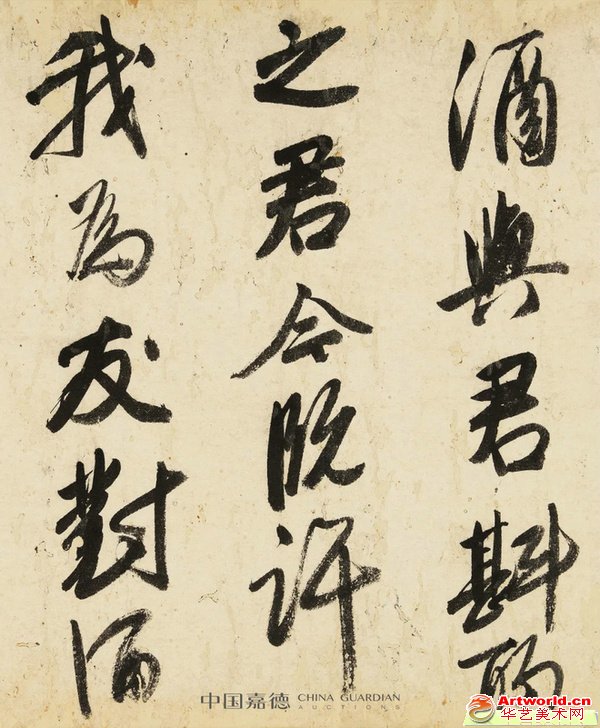 酒與君斟酌
之君今既許
我為友對酒
中国嘉德 CHINA GUARDIAN
AUCTIONS
Artworld.cn
华艺美术网